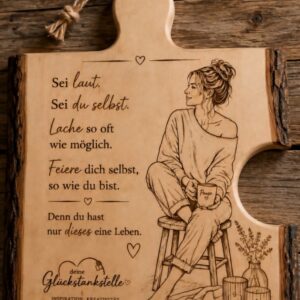 Sei laut.
Sei du selbst.
Lache so oft
wie möglich.
Feiere dich selbst,
so wie du bist.
Denn du hast
nur dieses eine Leben.
deine
Glückstankstelle